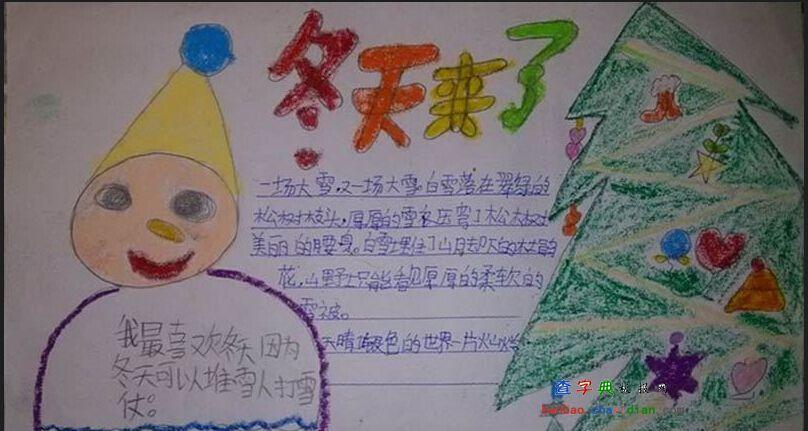 冬天来了
一场大雪,又一场大雪。白雪落在翠绿的
松树枝头,厚厚的雪衣压弯了松树
美丽的腰身。白雪埋住了山
花,山野上只能看见厚厚的柔软的
雪被。
天晴 银色的世界一片
我最喜欢冬天因为
冬天可以堆雪人打雪
仗。
查字典手抄报网